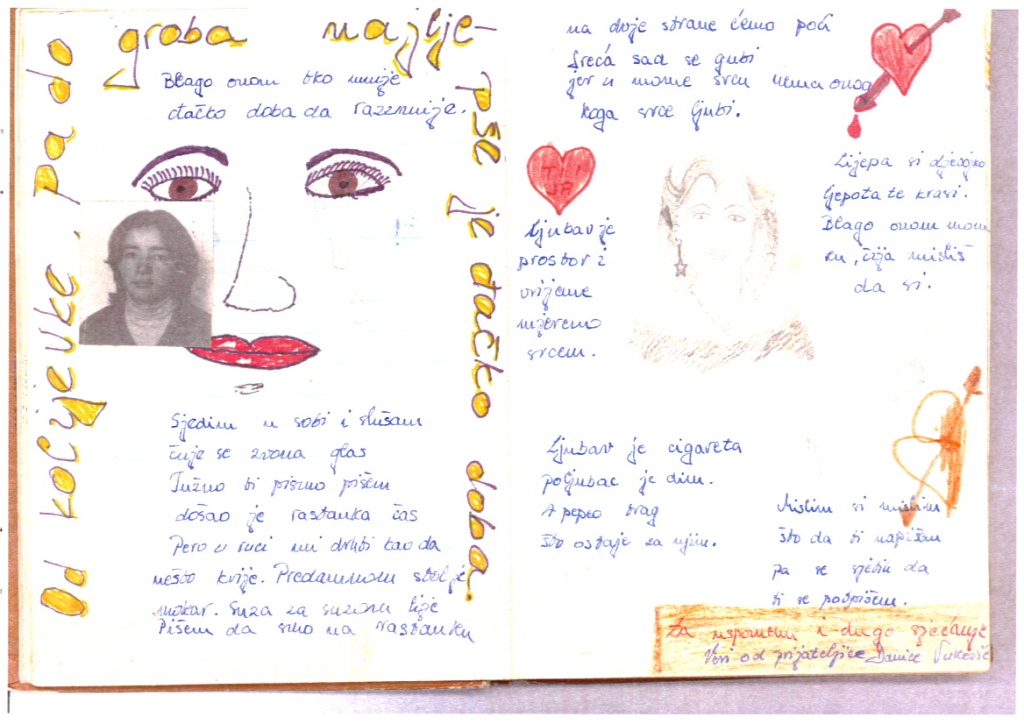 Od kolijevke, pa do
groba najlje-
pše je đačko doba.
Blago onom tko umije
đačko doba da razumije.
Sjedim u sobi i slušam
čuje se zvona glas
Tužno ti pismo pišem
došao je rastanka čas
Pero u ruci mi drhti kao da
nešto krije. Predamnom stol je
mokar. Suza za suzom lije
Pišem da smo na rastanku
na dvije strane ćemo poći
Sreća sad se gubi
jer u mome srcu nema onog
koga srce ljubi.
Ljubav je
prostor i
vrijeme
mjereno
srcem.
Lijepa si djevojko
ljepota te krasi.
Blago onom mom
ku, čija misliš
da si.
Ljubav je cigareta
poljubac je dim.
A pepeo trag
što ostaje za njim.
Mislim si mislim
što da ti napišem
pa se sjetim da
ti se potpišem.
Za uspomenu i dugo sjećanje
od prijateljice Danice